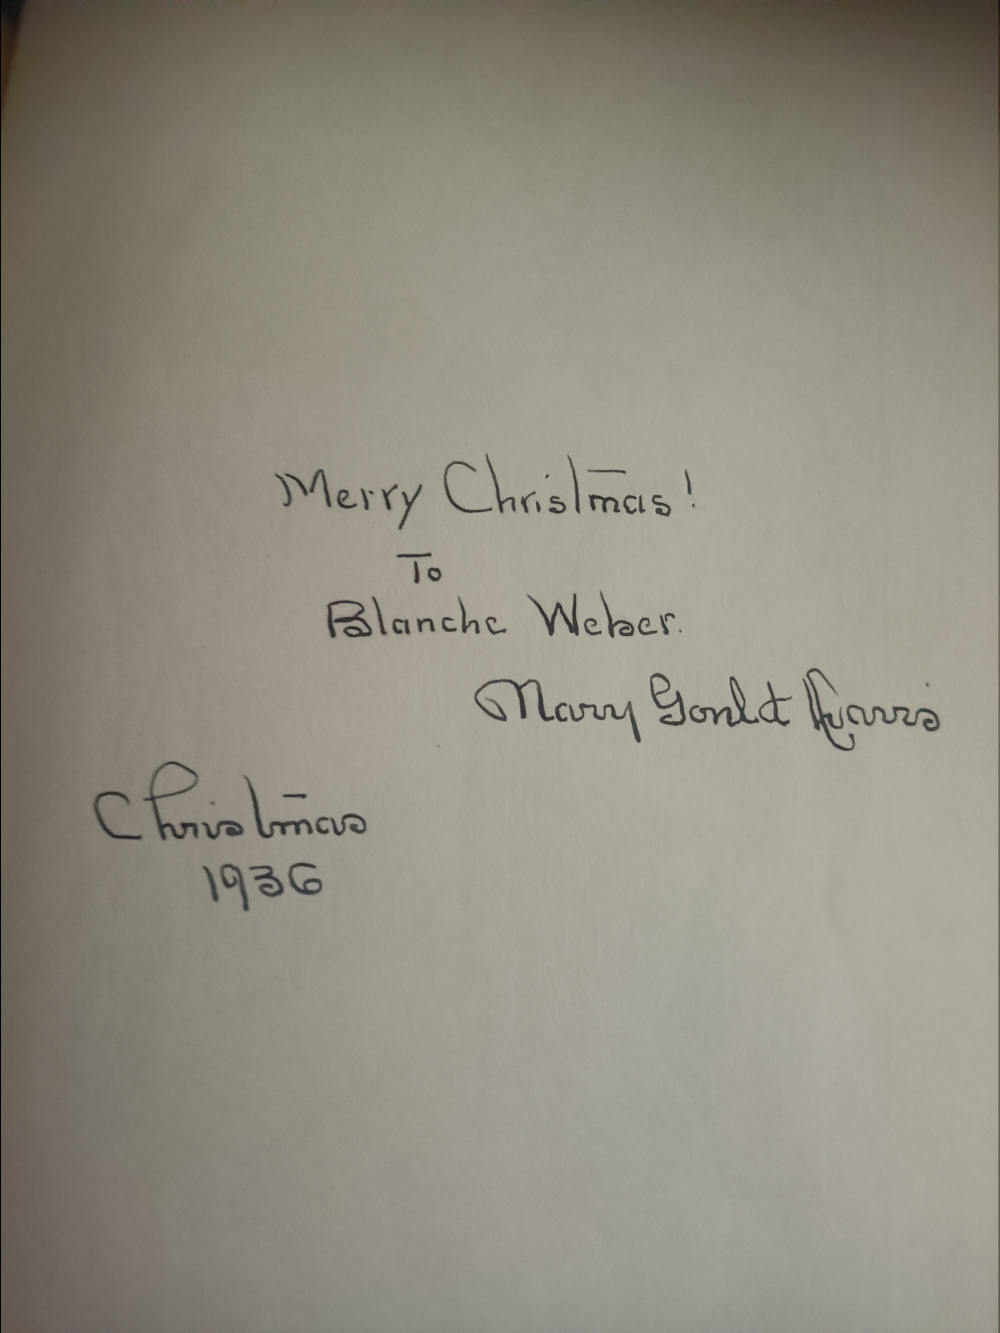 Merry Christmas!
To
Blanche Weber.
Mary Gould Davis
Christmas
1936